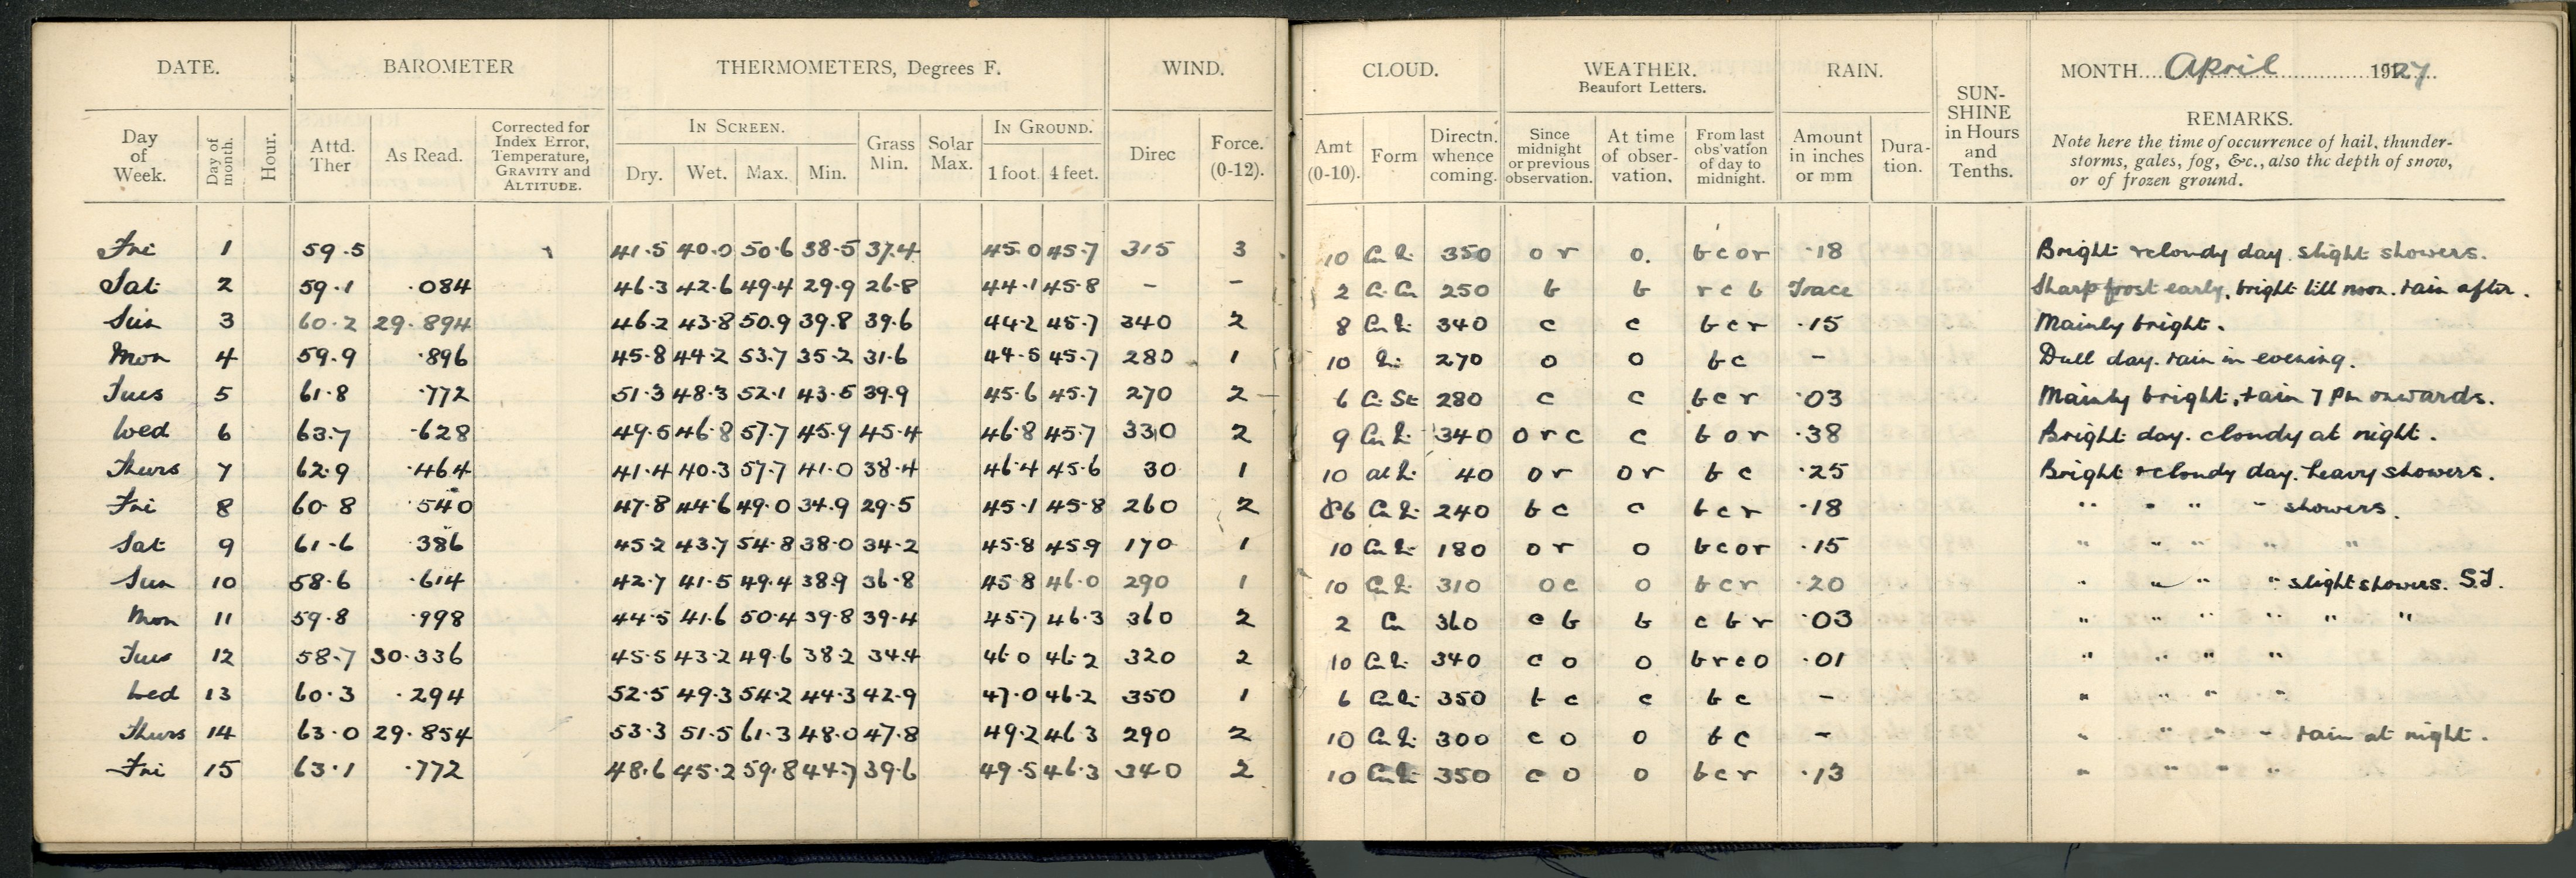 DATE. BAROMETER THERMOMETERS, Degrees F. WIND. CLOUD. WEATHER. Beaufort Letters. RAIN. SUN-SHINE in Hours and Tenths. MONTH April 1927
REMARKS.
Note here the time of occurrence of hail, thunder-
storms, gales, fog, &c., also the depth of snow,
or of frozen ground.
IN SCREEN. IN GROUND.
Day of Week. Day of month. Hour. Attd. Ther As Read. Corrected for Index Error, Temperature, GRAVITY and ALTITUDE. Dry. Wet. Max. Min. Grass Min. Solar Max. 1 foot. 4 feet. Direc Force. (0-12). Amt (0-10). Form Directn. whence coming. Since midnight or previous observation. At time of obser-vation. From last obs'vation of day to midnight. Amount in inches or mm Dura-tion.
Fri 1 59.5 41.5 40.0 50.6 38.5 37.4 45.0 45.7 315 3 10 350 o r o. b c o r .18 Bright & cloudy day. slight showers.
Sat 2 59.1 .084 46.3 42.6 49.4 29.9 26.8 44.1 45.8 – – 2 250 b b r c b Trace Sharp frost early, bright till noon. rain after.
Sun 3 60.2 29.894 46.2 43.8 50.9 39.8 39.6 44.2 45.7 340 2 8 340 c c b c r .15 Mainly bright.
Mon 4 59.9 .896 45.8 44.2 53.7 35.2 31.6 44.5 45.7 280 1 10 270 o o b c – Dull day. rain in evening.
Tues 5 61.8 .772 51.3 48.3 52.1 43.5 39.9 45.6 45.7 270 2 6 Ci St 280 c c b c r .03 Mainly bright, rain 7 Pm onwards.
Wed 6 63.7 .628 49.5 46.8 57.7 45.9 45.4 46.8 45.7 330 2 9 340 o r c c b o r .38 Bright day. cloudy at night.
Thurs 7 62.9 .464 41.4 40.3 57.7 41.0 38.4 46.4 45.6 30 1 10 40 o r o r b c .25 Bright & cloudy day. heavy showers.
Fri 8 60.8 .540 47.8 44.6 49.0 34.9 29.5 45.1 45.8 260 2 6 240 b c c b c r .18 " " " " showers.
Sat 9 61.6 .386 45.2 43.7 54.8 38.0 34.2 45.8 45.9 170 1 10 180 o r o b c o r .15 " " " " "
Sun 10 58.6 .614 42.7 41.5 49.4 38.9 36.8 45.8 46.0 290 1 10 310 o c o b c r .20 " " " " slight showers. S.T.
Mon 11 59.8 .998 44.5 41.6 50.4 39.8 39.4 45.7 46.3 360 2 2 Cu 360 c b b c b r .03 " " " " " "
Tues 12 58.7 30.336 45.5 43.2 49.6 38.2 34.4 46.0 46.2 320 2 10 340 c o o b r c o .01 " " " "
Wed 13 60.3 .294 52.5 49.3 54.2 44.3 42.9 47.0 46.2 350 1 6 350 b c c b c – " " " "
Thurs 14 63.0 29.854 53.3 51.5 61.3 48.0 47.8 49.2 46.3 290 2 10 300 c o o b c – " " " " rain at night.
Fri 15 63.1 .772 48.6 45.2 59.8 44.7 39.6 49.5 46.3 340 2 10 350 c o o b c r .13 " " " "